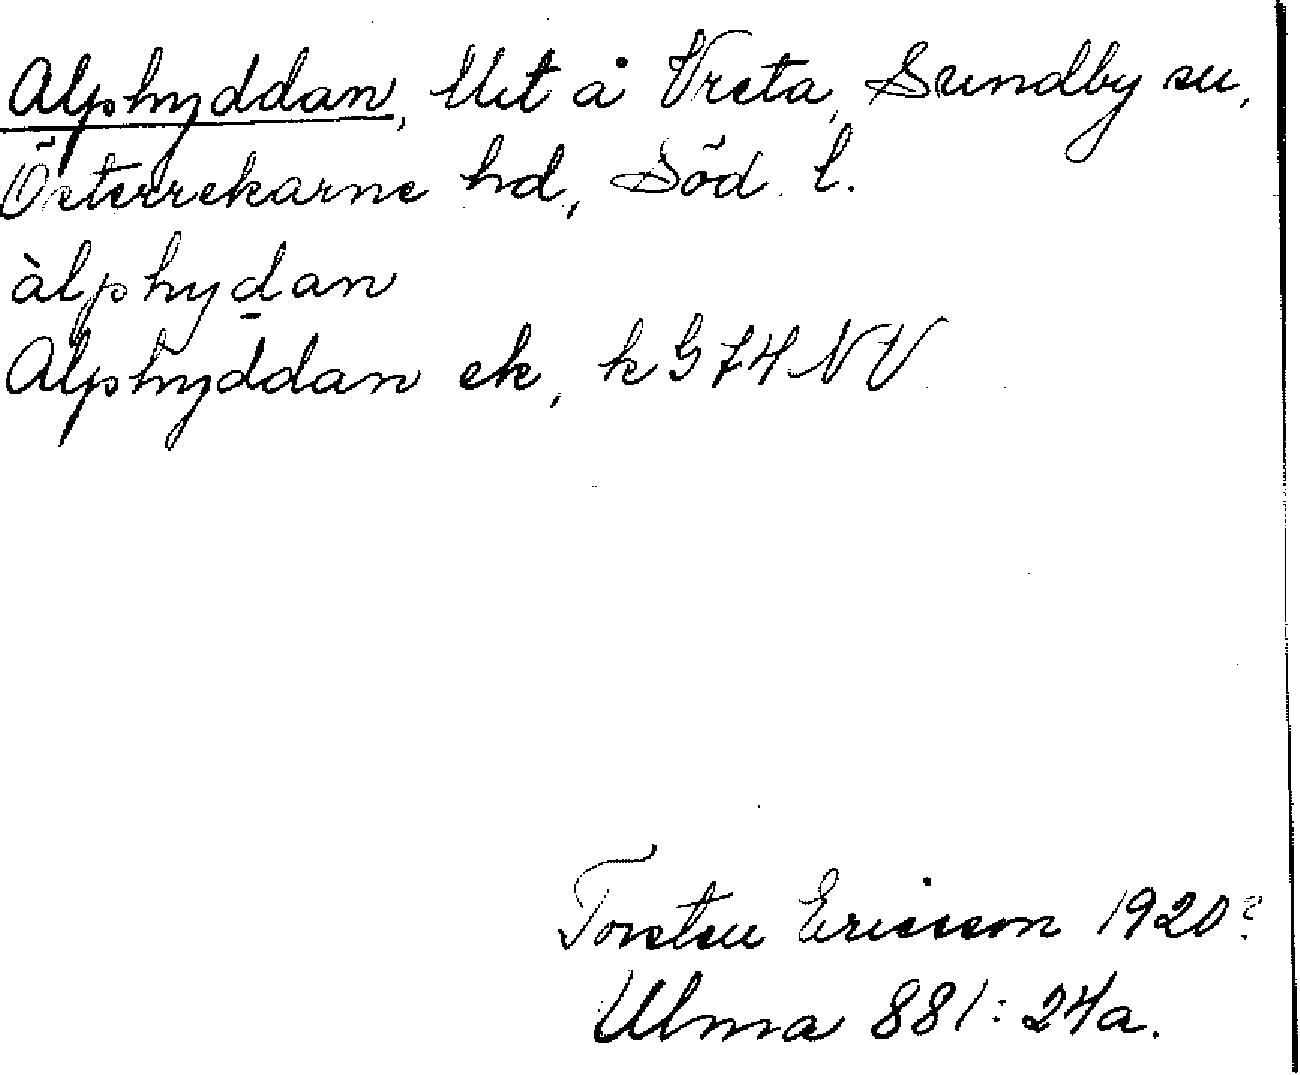 Alphyddan, Utt å Vreta, Sundby sn,
Österrekarne hd, Söd. l.
àlphyḏan
Alphyddan ek, k G 74 NV
Torsten Ericsson 1920?
Ulma 881:24a.